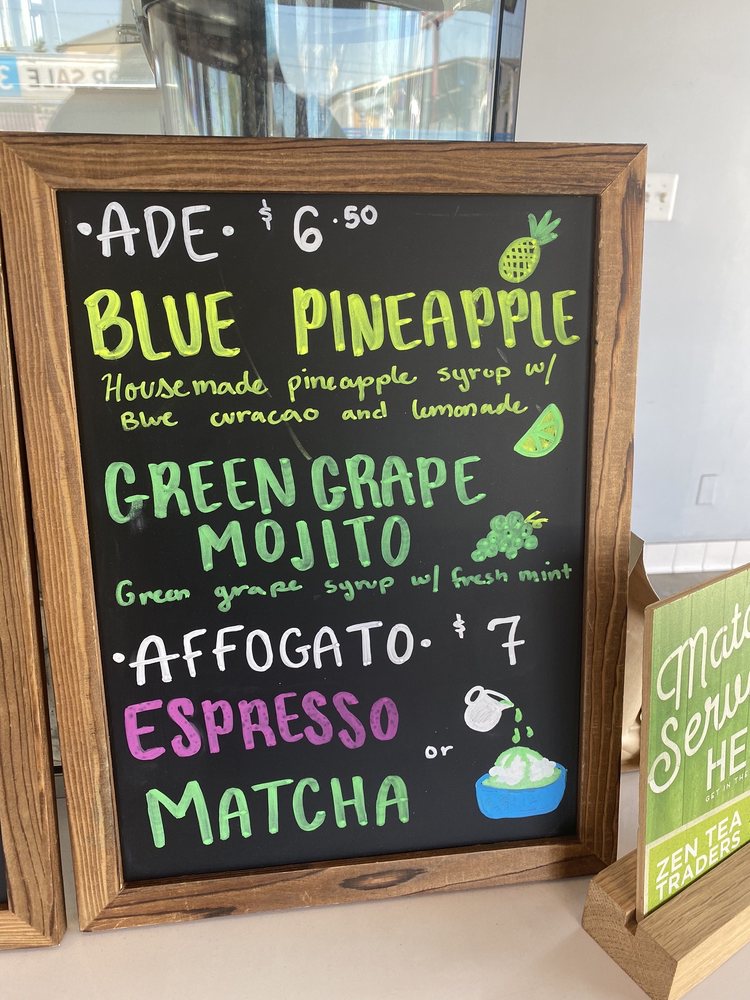 ·ADE· $6.50
BLUE PINEAPPLE
Housemade pineapple syrup w/
Blue curacao and lemonade
GREEN GRAPE
MOJITO
Green grape syrup w/ fresh mint
·AFFOGATO· $7
ESPRESSO
or
MATCHA
HE
GET IN THE
ZEN TEA
TRADERS